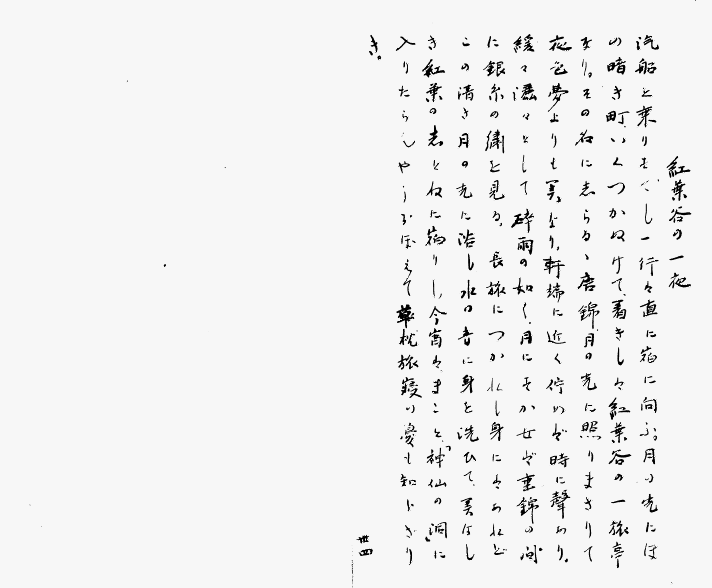 紅葉谷の一夜
汽船を乗りすてし一行は直に宿に向ふ。月の光にほ
の暗き町、いくつかぬけて、着きしは紅葉谷の一旅亭
なり。その名に志らるゝ唐錦、月の光に照りまさりて
夜色夢よりも美なり。軒端に近く佇めば時に聲あり。
緩々濺々として碎雨の如く、月にすかせば重錦の間
に銀糸の繍を見る。長旅につかれし身にはあれど
この清き月の光に浴し水の音に身を洗ひて、美はし
き紅葉の志とねに宿りし、今宵はまこと「神仙の洞」に
入りたらんやうおぼえて草枕旅寝の憂も知らざり
き。
廿四